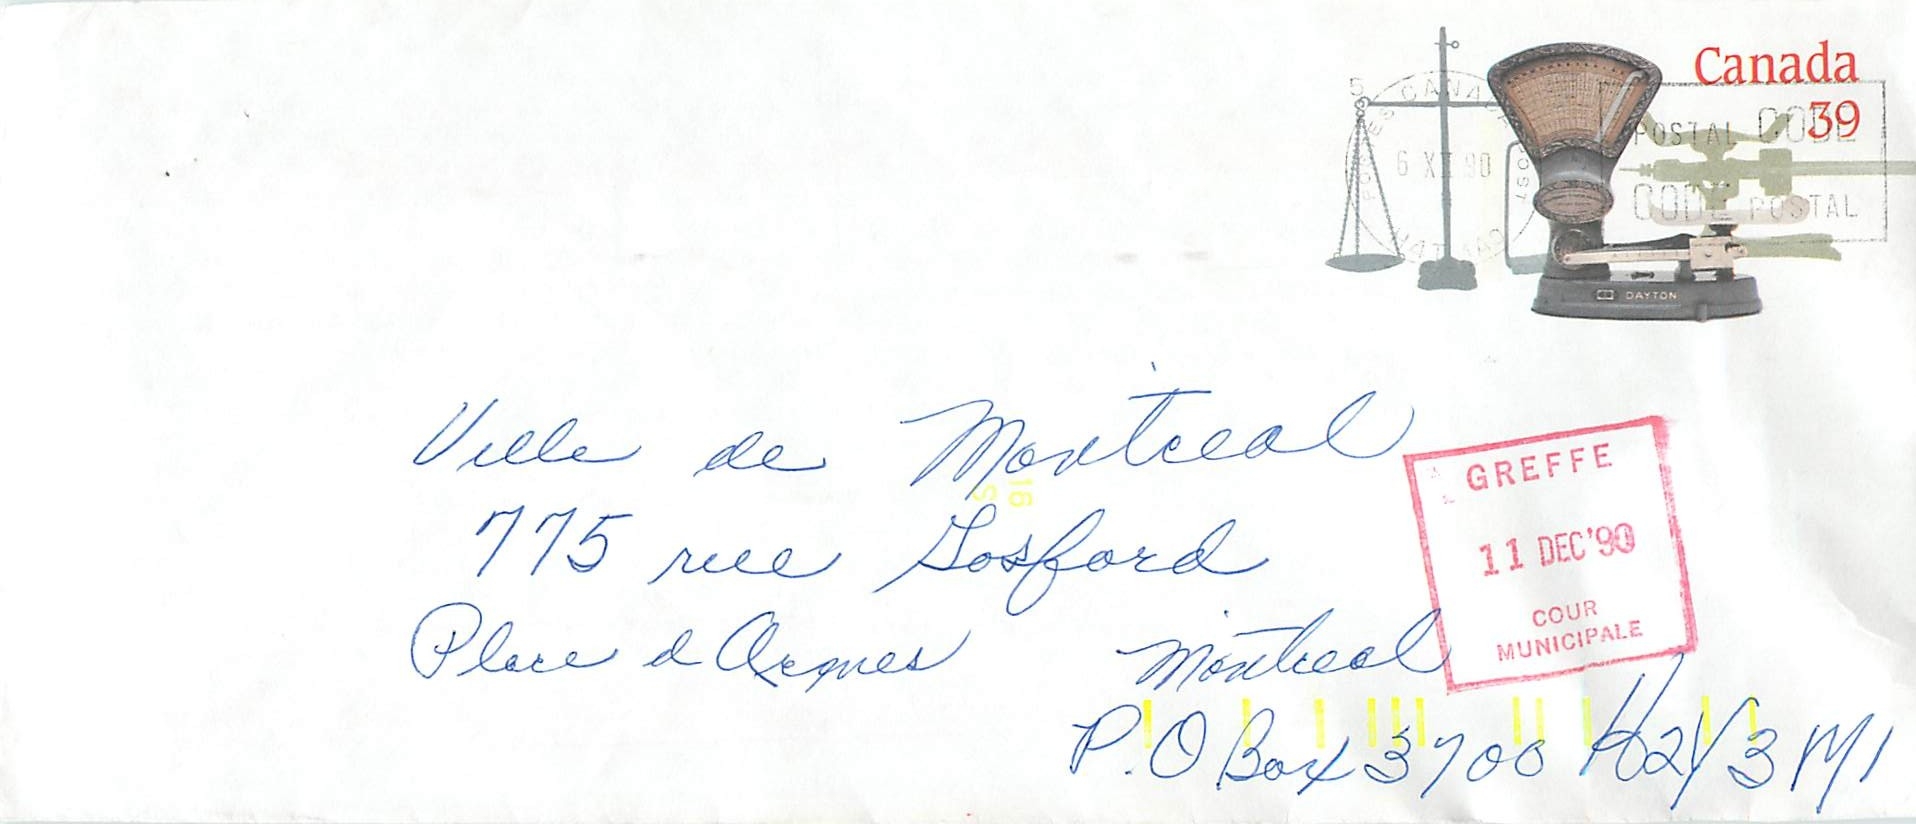 Canada
39
5
CANADA
POSTES
POST
6 XI 90
POSTAL CODE
CODE POSTAL
DAYTON
Ville de Montreal
16
S
775 rue Gosford
Place d Armes Montreal
P.O Box 3700 H2Y 3M1
GREFFE
11 DEC '90
COUR
MUNICIPALE